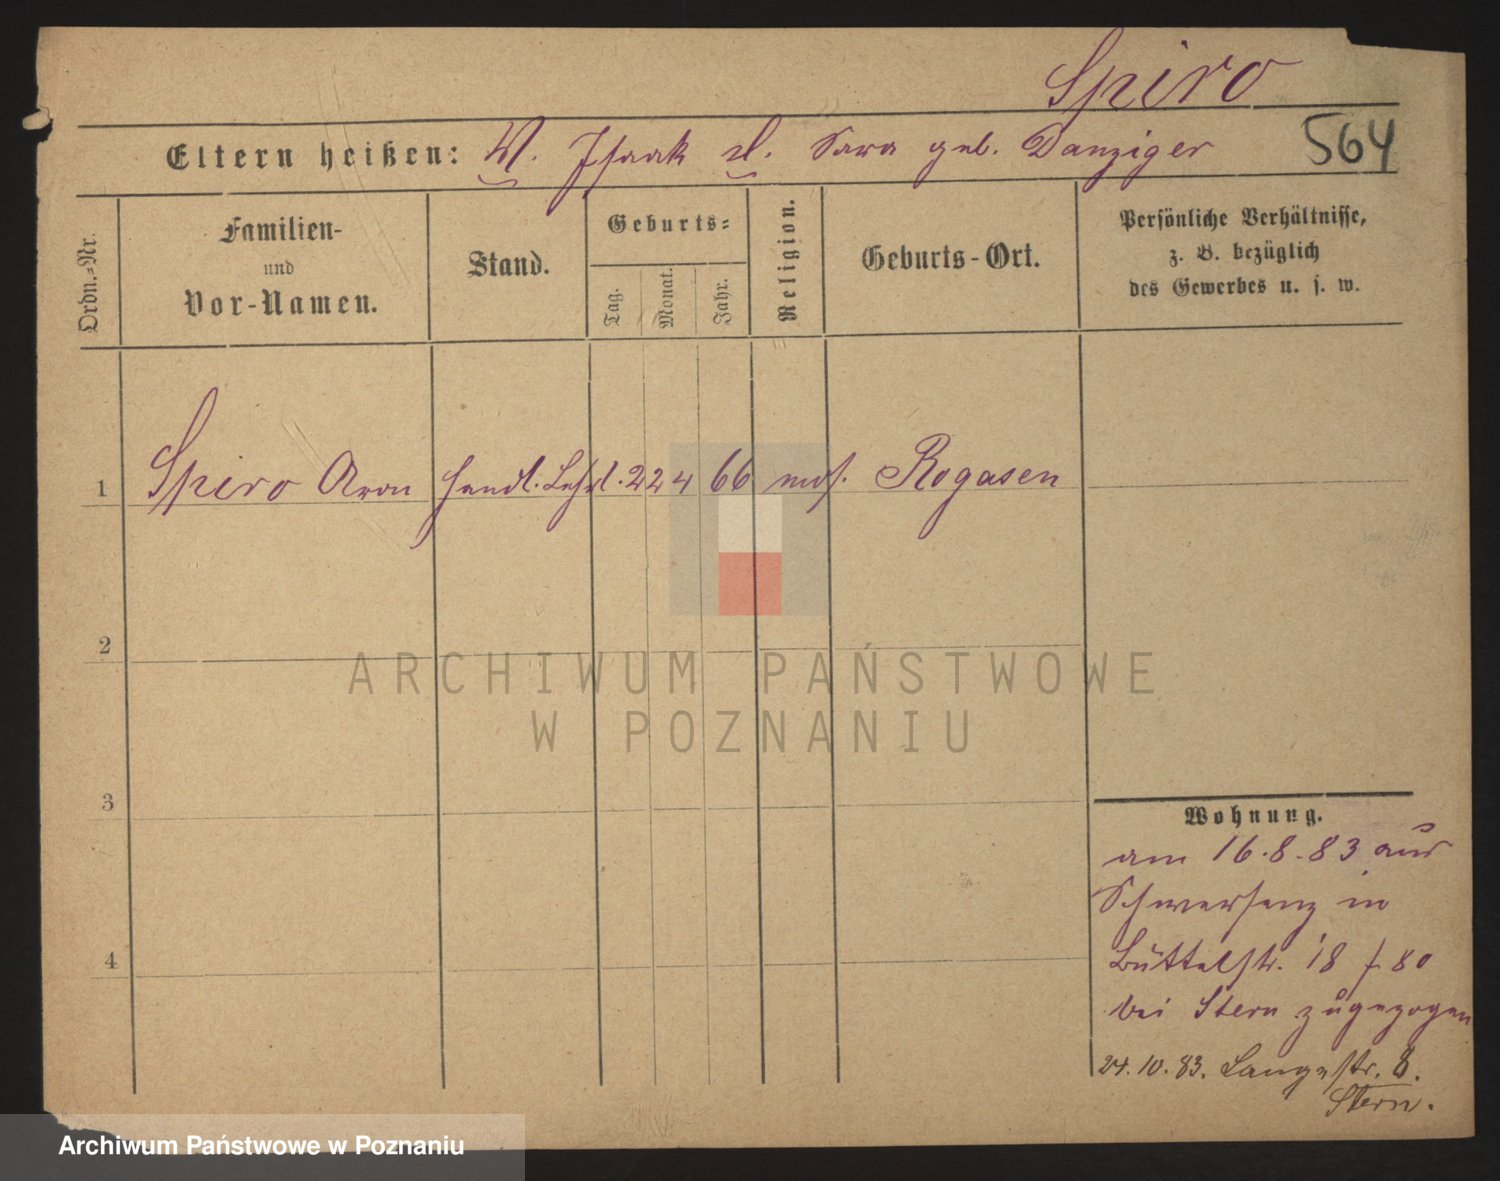 Spiro
Eltern heißen: V. Isaak M. Sara geb. Danziger
564
Ordn.=Nr.
Familien-
und
Vor-Namen.
Stand.
Geburts=
Tag.
Monat.
Jahr.
Religion.
Geburts-Ort.
Persönliche Verhältnisse,
z. B. bezüglich
des Gewerbes u. s. w.
1 Spiro Aron Handl. Lehrl. 22 4 66 mos. Rogasen
2
3
4
Wohnung.
am 16.8.83 aus
Schwersenz in
Büttelstr. 18 f. 80
bei Stern zugezogen
24.10.83. Langestr. 8.
Stern.
ARCHIWUM PAŃSTWOWE
W POZNANIU
Archiwum Państwowe w Poznaniu